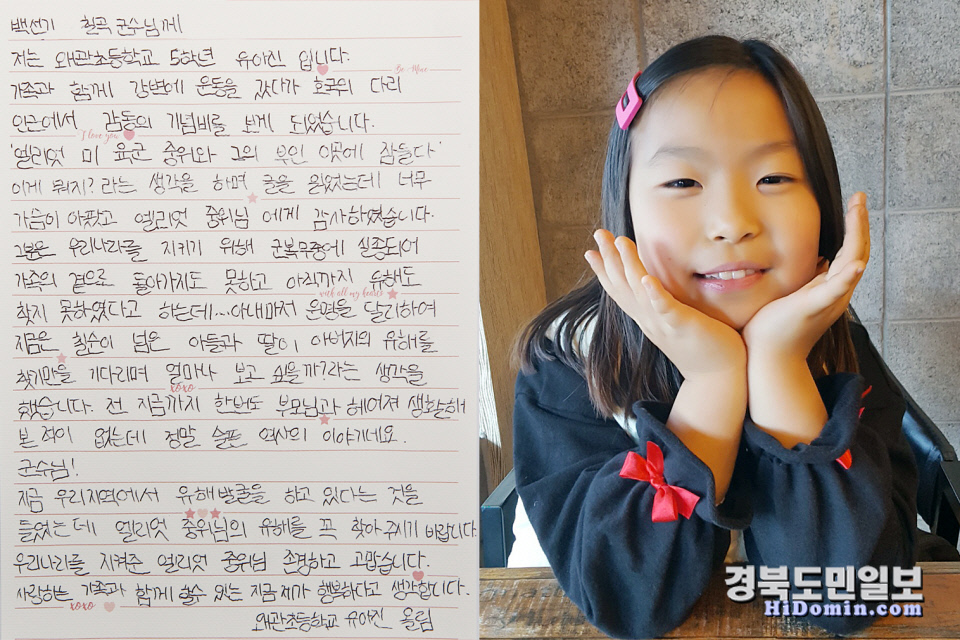 백선기 칠곡 군수님께
저는 왜관초등학교 5학년 유아진 입니다.
Be Mine
가족과 함께 강변에 운동을 갔다가 호국의 다리
인근에서 감동의 기념비를 보게 되었습니다.
I love you
'엘리엇 미 육군 중위와 그의 부인 이곳에 잠들다'
이게 뭐지? 라는 생각을 하며 글을 읽었는데 너무
가슴이 아팠고 엘리엇 중위님 에게 감사하였습니다.
그분은 우리나라를 지키기 위해 군복무중에 실종되어
가족의 곁으로 돌아가지도 못하고 아직까지 유해도
with all my heart
찾지 못하였다고 하는데...아내마저 운명을 달리하여
지금은 칠순이 넘은 아들과 딸이 아버지의 유해를
찾기만을 기다리며 얼마나 보고 싶을까?라는 생각을
xoxo
했습니다. 전 지금까지 한번도 부모님과 헤어져 생활해
본 적이 없는데 정말 슬픈 역사의 이야기네요.
군수님!
지금 우리지역에서 유해발굴을 하고 있다는 것을
들었는데 엘리엇 중위님의 유해를 꼭 찾아주시기 바랍니다.
우리나라를 지켜준 엘리엇 중위님 존경하고 고맙습니다.
사랑하는 가족과 함께 할수 있는 지금 제가 행복하다고 생각합니다.
xoxo
왜관초등학교 유아진 올림
경북도민일보
HiDomin.com